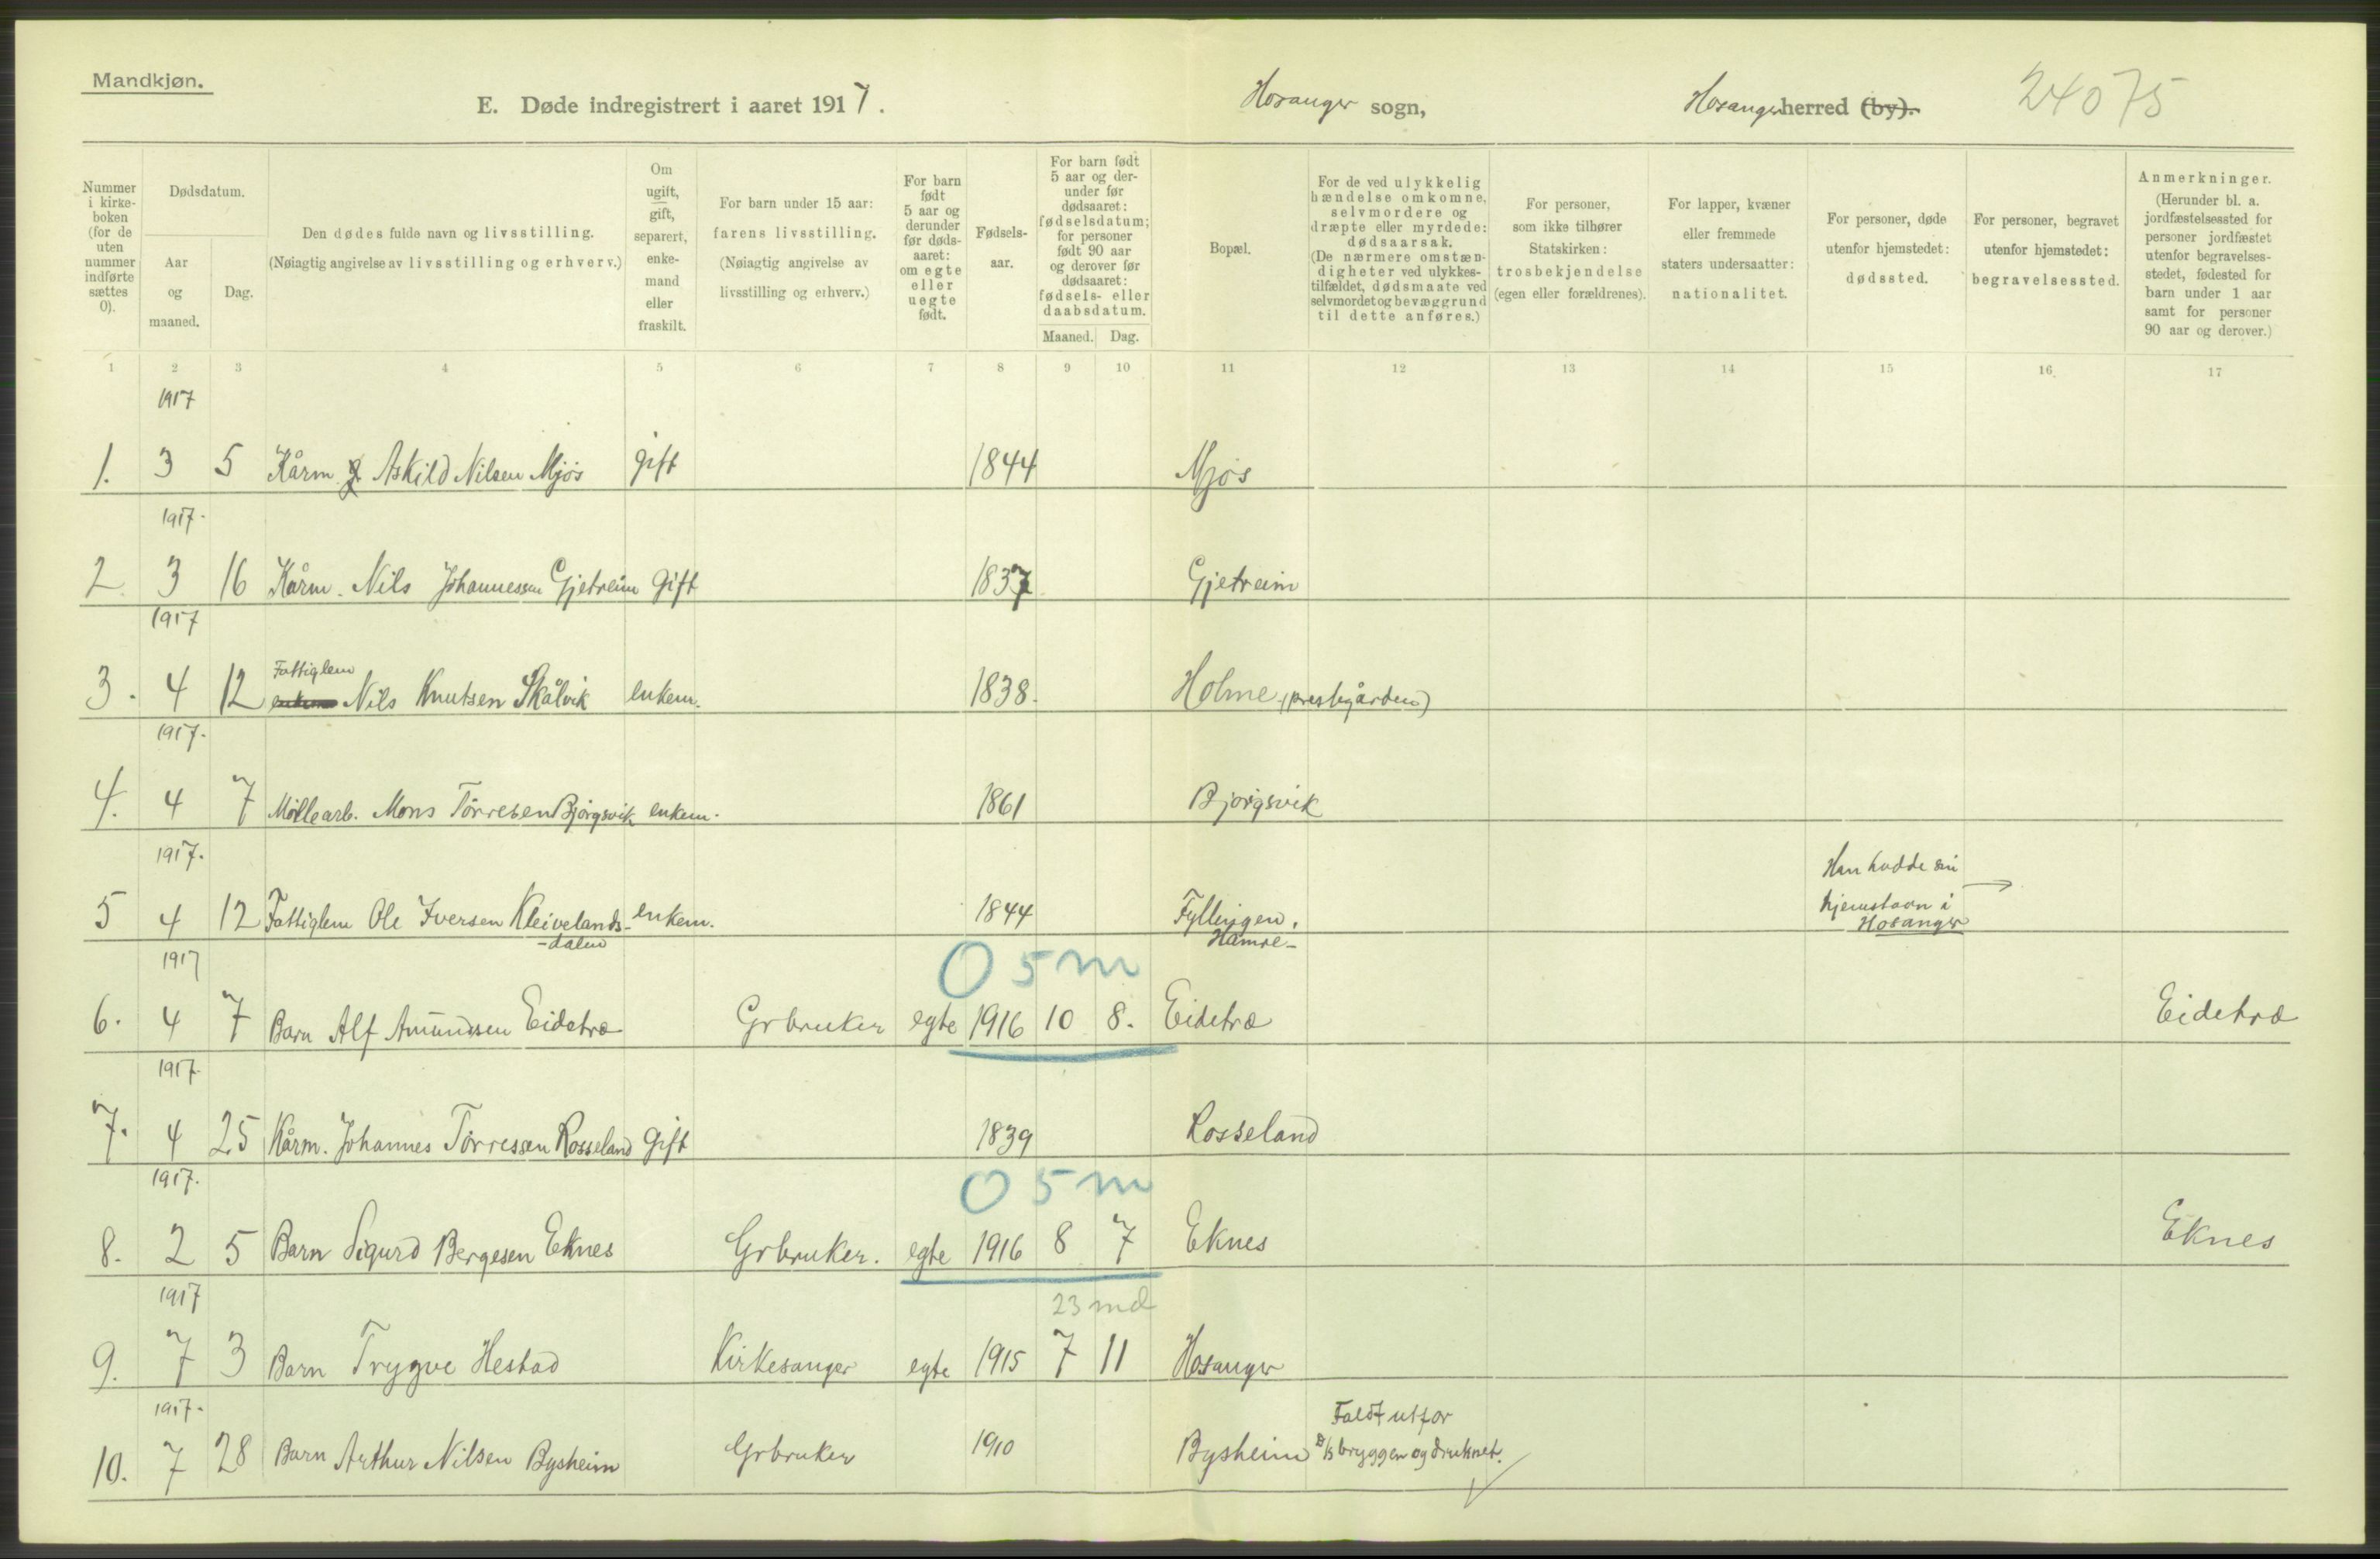 Mandkjøn.
E. Døde indregistrert i aaret 1917.
Hosanger sogn,
Hosanger herred (by).
24075
Nummer i kirkeboken (for de uten nummer indførte sættes 0).
Dødsdatum.
Aar og maaned.
Dag.
Den dødes fulde navn og livsstilling.
(Nøiagtig angivelse av livsstilling og erhverv.)
Om ugift, gift, separert, enkemand eller fraskilt.
For barn under 15 aar: farens livsstilling.
(Nøiagtig angivelse av livsstilling og erhverv.)
For barn født 5 aar og derunder før dødsaaret: om egte eller uegte født.
Fødselsaar.
For barn født 5 aar og derunder før dødsaaret: fødselsdatum; for personer født 90 aar og derover før dødsaaret: fødsels- eller daabsdatum.
Maaned. Dag.
Bopæl.
For de ved ulykkelig hændelse omkomne, selvmordere og dræpte eller myrdede: dødsaarsak.
(De nærmere omstændigheter ved ulykkestilfældet, dødsmaate ved selvmordet og bevæggrund til dette anføres.)
For personer, som ikke tilhører Statskirken: trosbekjendelse (egen eller forældrenes).
For lapper, kvæner eller fremmede staters undersaatter: nationalitet.
For personer, døde utenfor hjemstedet: dødssted.
For personer, begravet utenfor hjemstedet: begravelsessted.
Anmerkninger.
(Herunder bl. a. jordfæstelsessted for personer jordfæstet utenfor begravelsesstedet, fødested for barn under 1 aar samt for personer 90 aar og derover.)
1 2 3 4 5 6 7 8 9 10 11 12 13 14 15 16 17
1917
1. 3 5 Kårm. Askild Nilsen Mjøs gift 1844 Mjøs
1917.
2. 3 16 Kårm. Nils Johannessen Gjetreim Gift 1837 Gjetreim
1917
Fattiglem
3. 4 12 Nils Knutsen Skålvik enkem. 1838. Holme (prestegården)
1917.
4. 4 7 Møllearb. Mons Torresen Bjørgsvik enkem. 1861 Bjørgsvik
1917.
Han hadde sin
5 4 12 Fattiglem Ole Iversen Kleivelands- enkem. 1844 Fyllingen. hjemstavn i
-dalen Hamre- Hosanger
1917
0 5 m
6. 4 7 Barn Alf Amundsen Eidetræ Grbruker egte 1916 10 8. Eidetræ Eidetræ
1917
7. 4 25 Kårm. Johannes Torressen Rosseland Gift 1839 Rosseland
1917.
0 5 m
8. 2 5 Barn Sigurd Bergesen Eknes Grbruker. egte 1916 8 7 Eknes Eknes
1917
23 md
9. 7 3 Barn Trygve Hestad Kirkesanger egte 1915 7 11 Hosanger
1917.
Faldt utfor
10. 7 28 Barn Arthur Nilsen Bysheim Grbruker 1910 Bysheim bryggen og druknet.